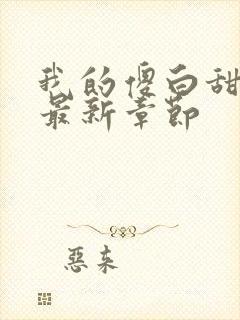 我的傻白甜
最新章节
恶来